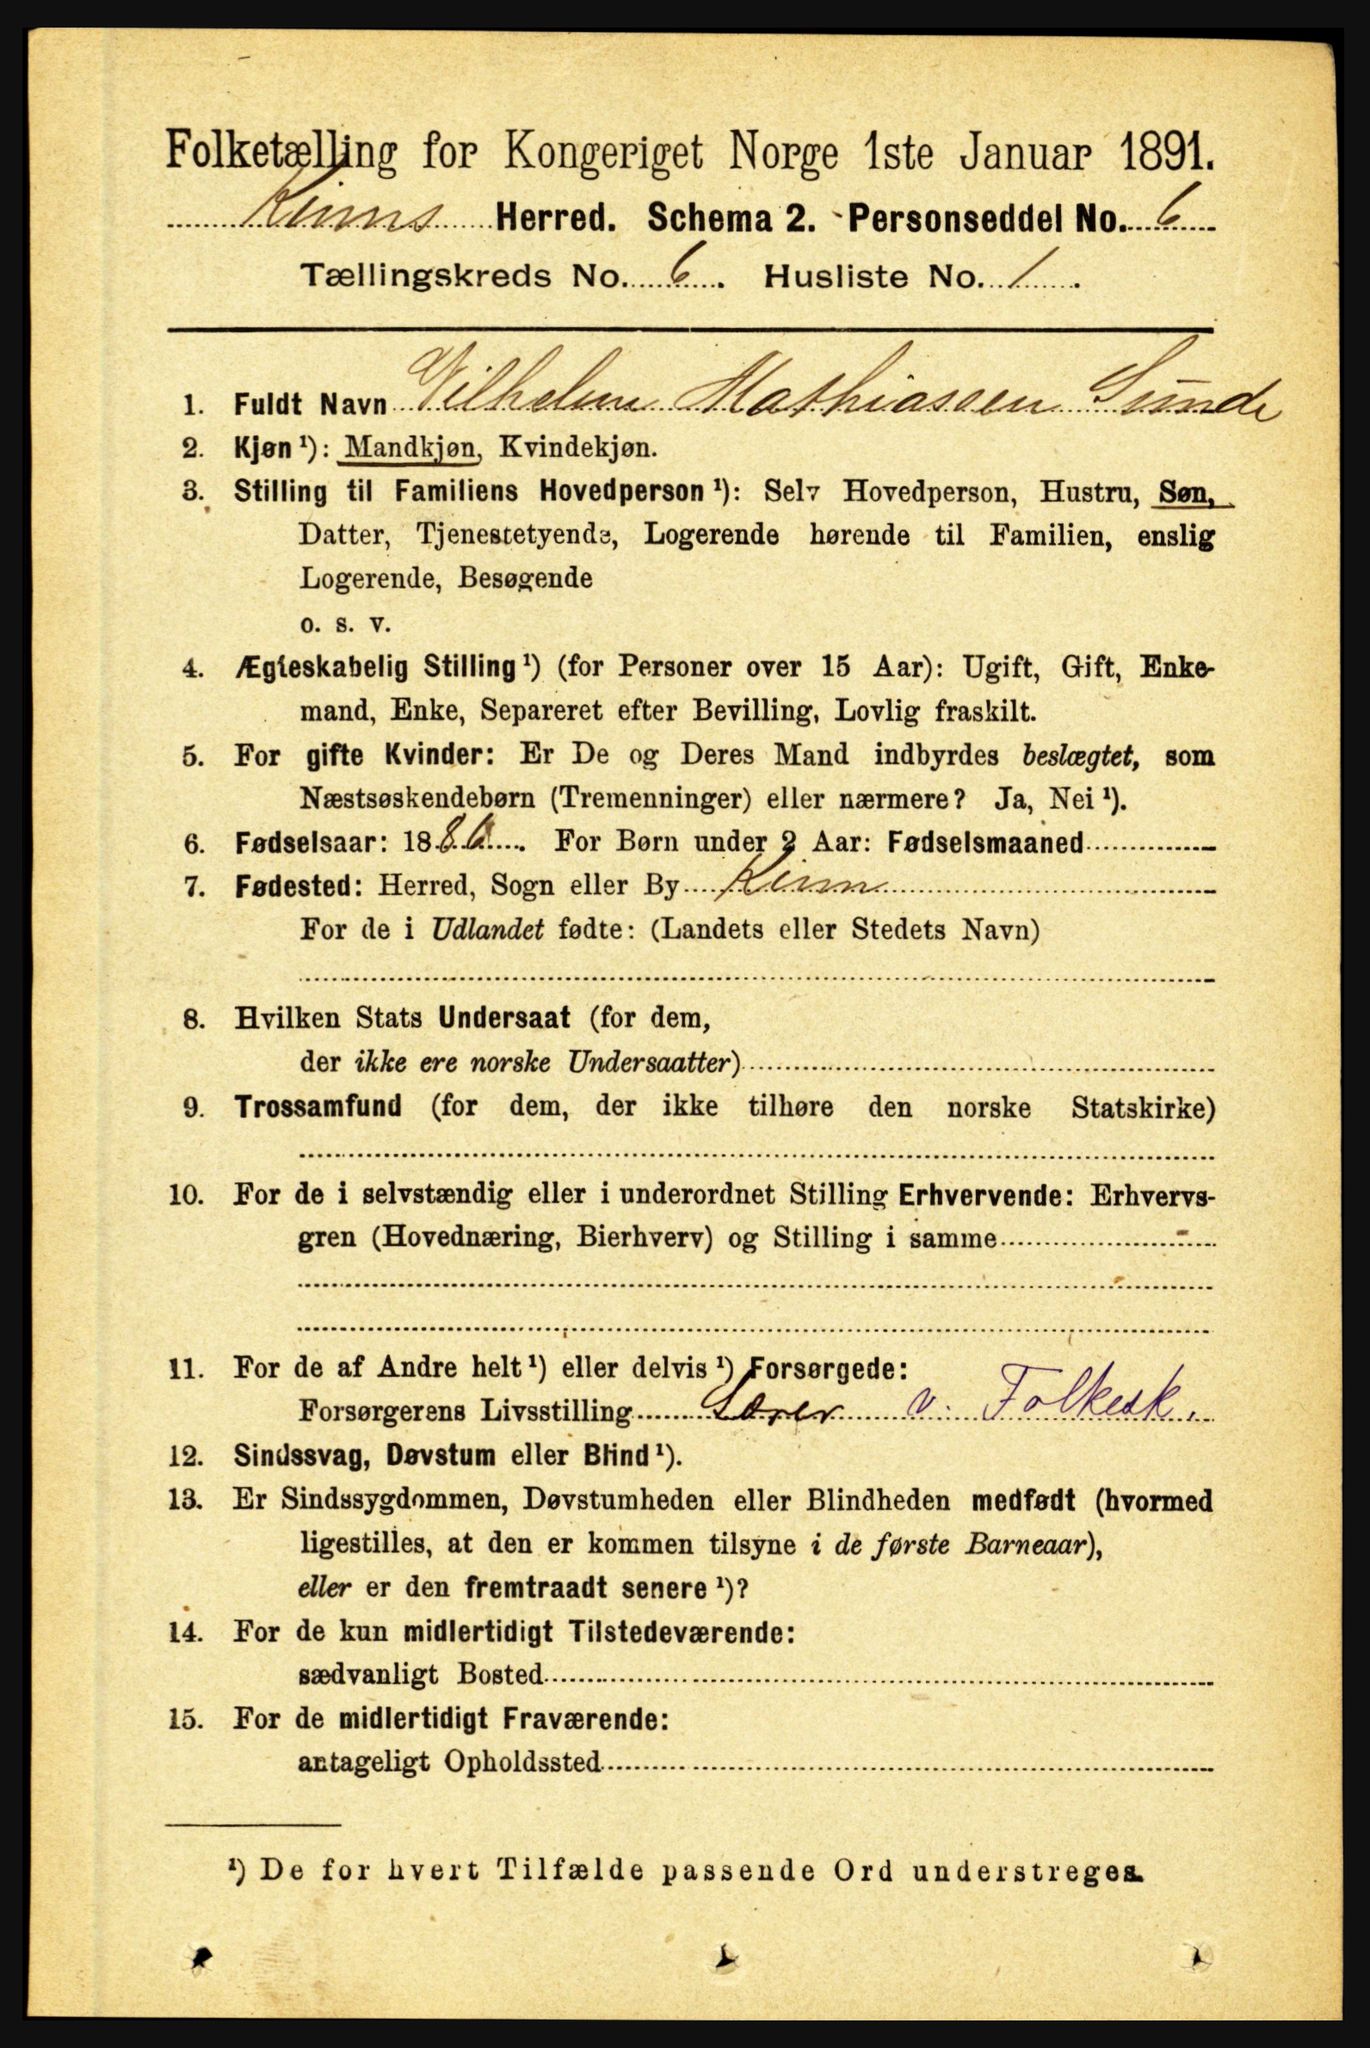 Folketælling for Kongeriget Norge 1ste Januar 1891.
Kinns Herred. Schema 2. Personseddel No. 6
Tællingskreds No. 6. Husliste No. 1.
1. Fuldt Navn Vilhelm Mathiassen Sunde
2. Kjøn ¹): Mandkjøn, Kvindekjøn.
3. Stilling til Familiens Hovedperson ¹): Selv Hovedperson, Hustru, Søn,
Datter, Tjenestetyende, Logerende hørende til Familien, enslig
Logerende, Besøgende
o. s. v.
4. Ægteskabelig Stilling ¹) (for Personer over 15 Aar): Ugift, Gift, Enke-
mand, Enke, Separeret efter Bevilling, Lovlig fraskilt.
5. For gifte Kvinder: Er De og Deres Mand indbyrdes beslægtet, som
Næstsøskendebørn (Tremenninger) eller nærmere? Ja, Nei ¹).
6. Fødselsaar: 1886. For Børn under 2 Aar: Fødselsmaaned
7. Fødested: Herred, Sogn eller By Kinn
For de i Udlandet fødte: (Landets eller Stedets Navn)
8. Hvilken Stats Undersaat (for dem,
der ikke ere norske Undersaatter)
9. Trossamfund (for dem, der ikke tilhøre den norske Statskirke)
10. For de i selvstændig eller i underordnet Stilling Erhvervende: Erhvervs-
gren (Hovednæring, Bierhverv) og Stilling i samme
11. For de af Andre helt ¹) eller delvis ¹) Forsørgede:
Forsørgerens Livsstilling Lærer v. Folkesk.
12. Sindssvag, Døvstum eller Blind ¹).
13. Er Sindssygdommen, Døvstumheden eller Blindheden medfødt (hvormed
ligestilles, at den er kommen tilsyne i de første Barneaar),
eller er den fremtraadt senere ¹)?
14. For de kun midlertidigt Tilstedeværende:
sædvanligt Bosted
15. For de midlertidigt Fraværende:
antageligt Opholdssted
¹) De for hvert Tilfælde passende Ord understreges.